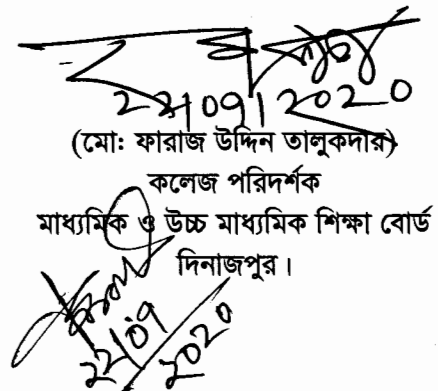 22/09/2020
(মোঃ ফারাজ উদ্দিন তালুকদার)
কলেজ পরিদর্শক
মাধ্যমিক ও উচ্চ মাধ্যমিক শিক্ষা বোর্ড
দিনাজপুর।
22/09
2020